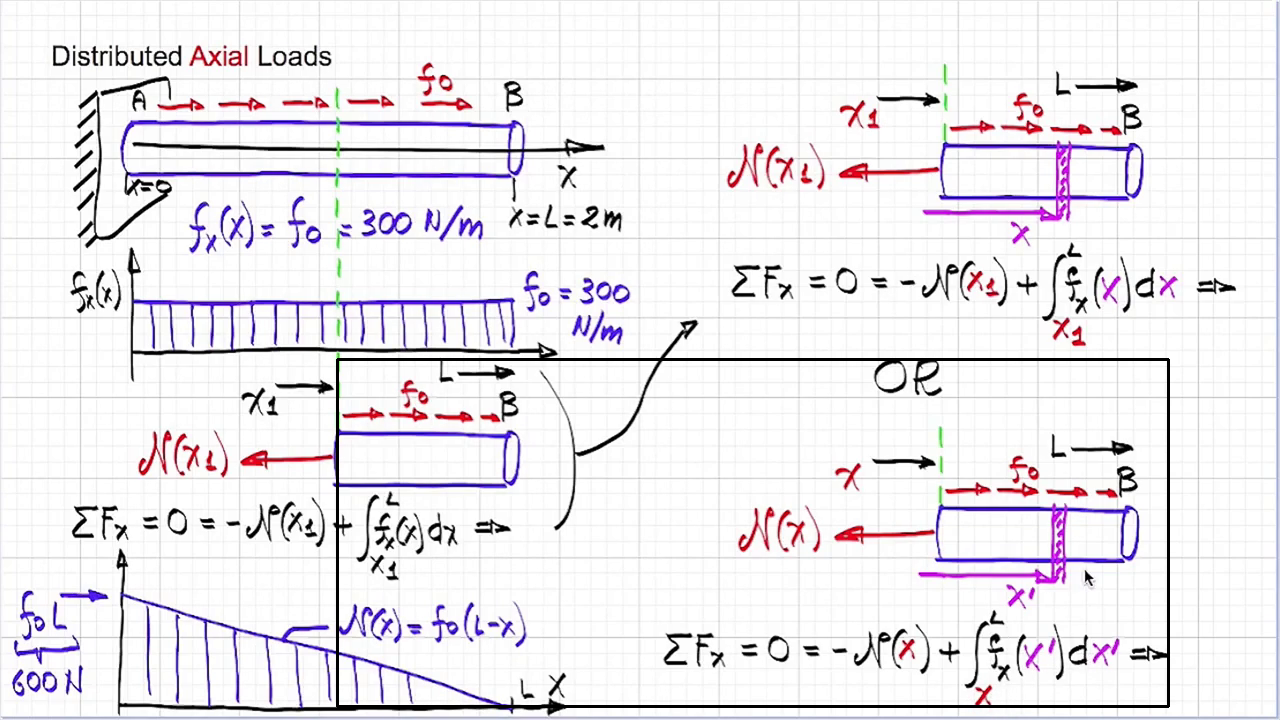 Distributed Axial Loads
A
f0
B
x
x=0
x=L=2m
fx(x)= f0 =300 N/m
fx(x)
f0=300
N/m
x1
L
f0
B
N(x1)
ΣFx = 0 = -N(x1) + ∫x1^L fx(x)dx ⇒
f0L
600N
N(x)=f0(L-x)
L
X
L
x1
f0
B
N(x1)
x
ΣFx = 0 = -N(x1) + ∫x1^L fx(x)dx ⇒
OR
L
x
f0
B
N(x)
x'
ΣFx = 0 = -N(x) + ∫x^L fx(x')dx' ⇒